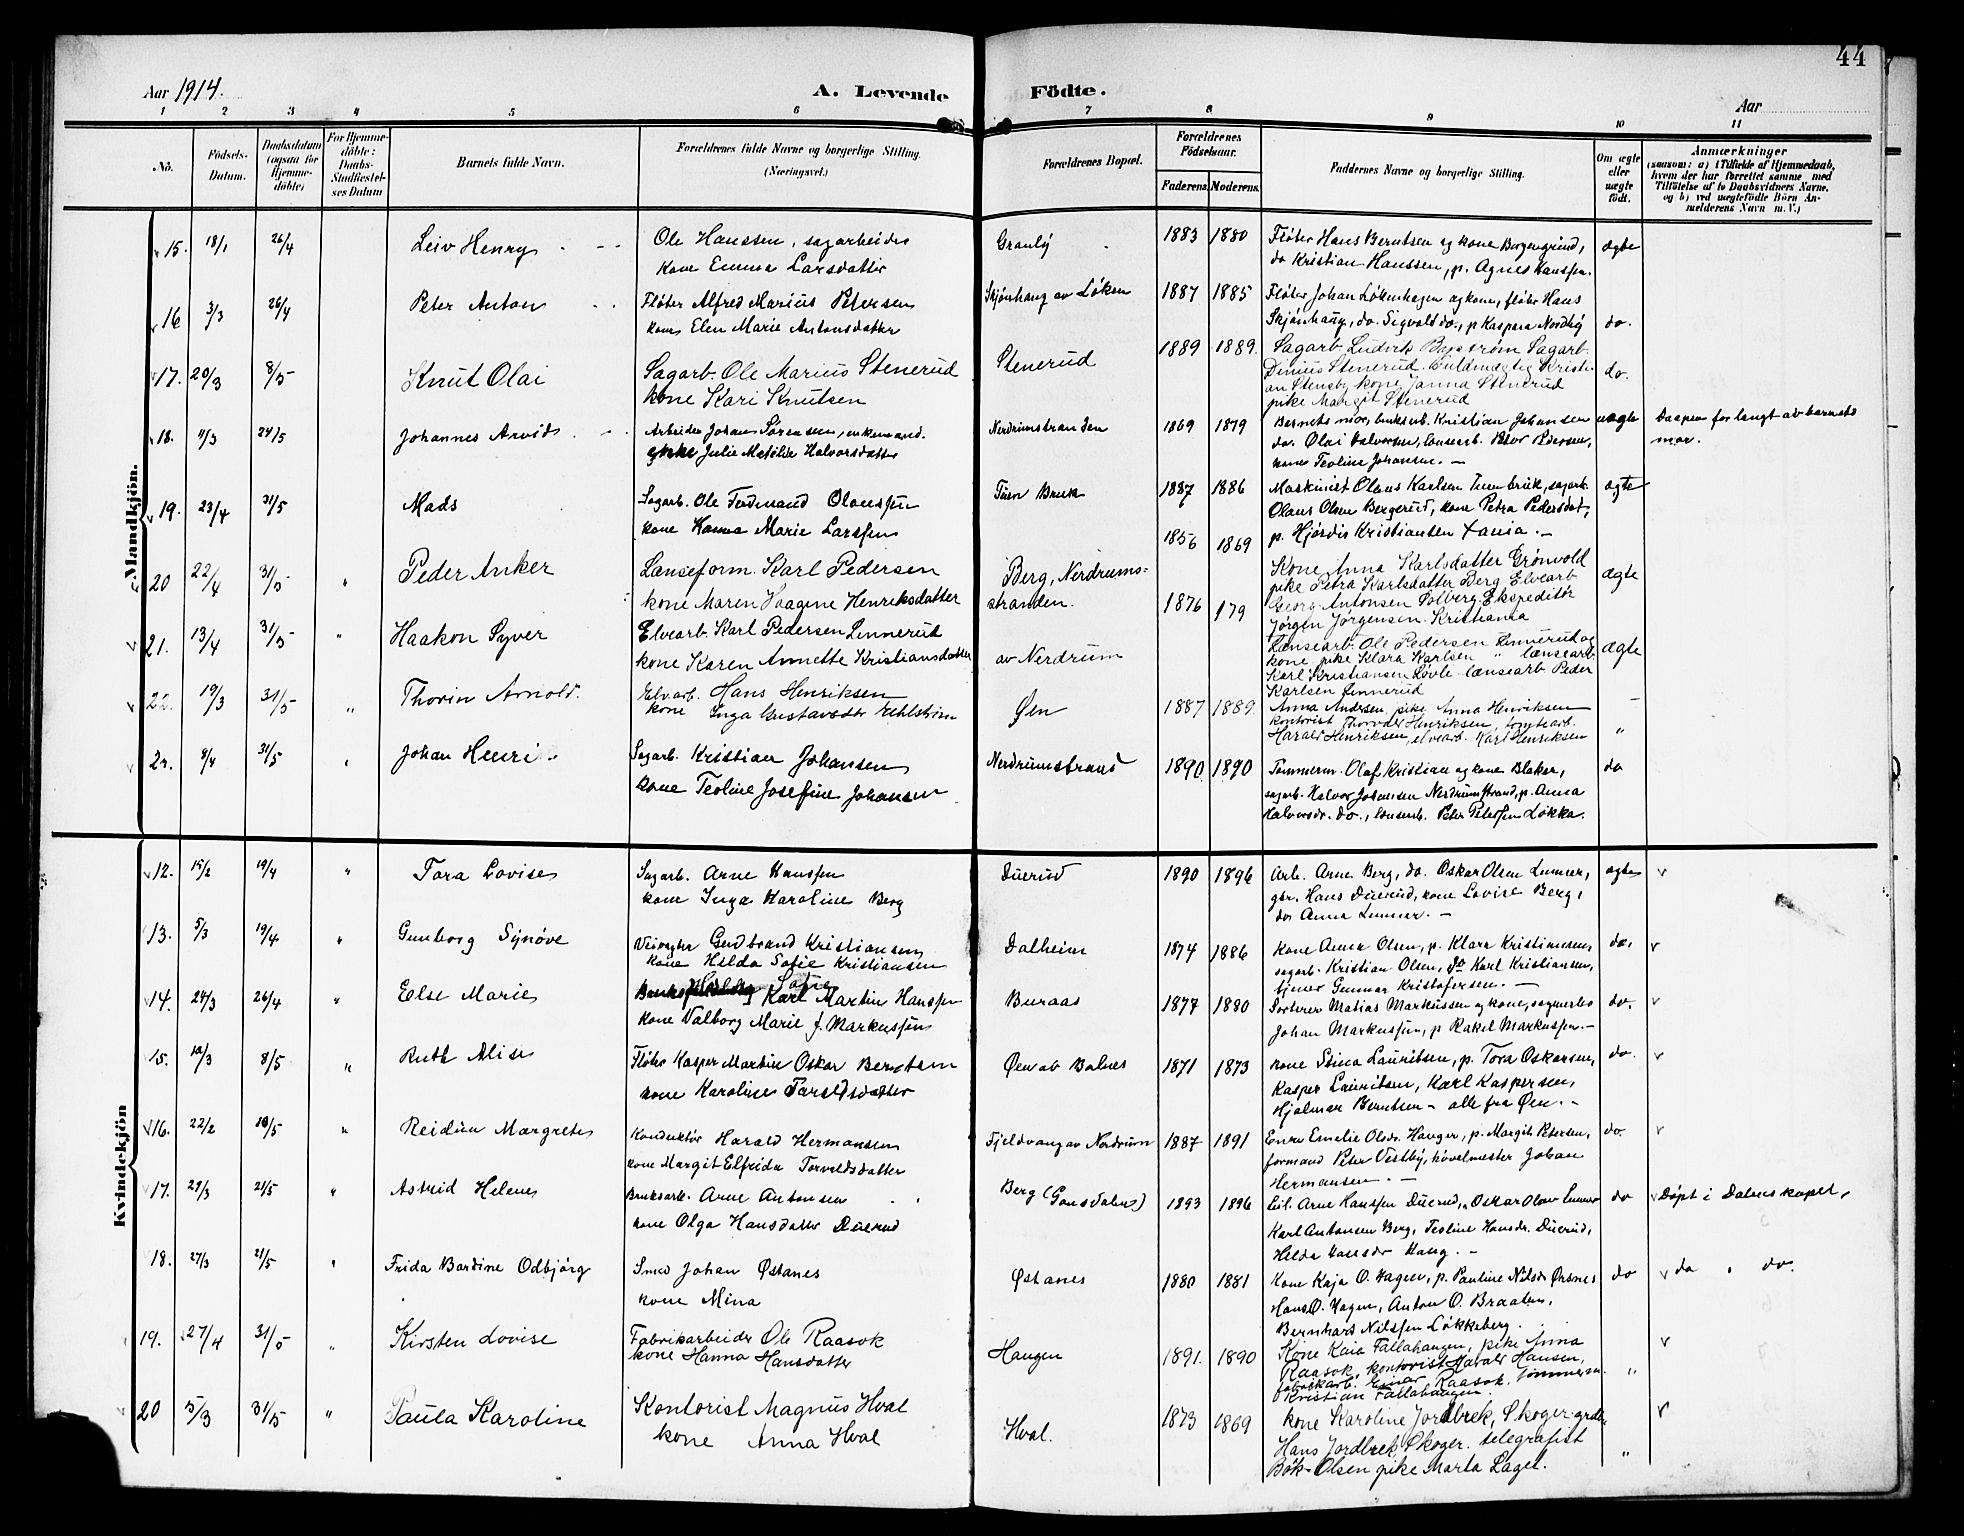 44
Aar 1914.
A. Levende Födte.
Aar
1 2 3 4 5 6 7 8 9 10 11
No.
Födsels-Datum.
Daabsdatum (ogsaa for Hjemme-döbte)
For Hjemme-döbte: Daabs-Stadfæstel-ses Datum
Barnets fulde Navn.
Forældrenes fulde Navne og borgerlige Stilling. (Næringsvei.)
Forældrenes Bopæl.
Forældrenes Födselsaar.
Faderens. Moderens.
Faddernes Navne og borgerlige Stilling.
Om ægte eller uægte födt.
Anmærkninger
(saasom: a) i Tilfælde af Hjemmedaab,
hvem der har forrettet samme med
Tilföielse af to Daabsvidners Navne,
og b) ved uægtefödte Börn An-
melderens Navn m. V.)
Mandkjön.
15. 18/1 26/4 Leiv Henry Ole Hanssen, sagarbeider Granly 1883 1880 Fløter Hans Berntsen og kone Borgengrind, ægte
kone Emma Larsdatter do Kristian Hanssen, p. Agnes Hanssen.
16 3/3 26/4 Peter Anton Fløter Alfred Marius Petersen Skjønhaug av Løken 1887 1885 Fløter Johan Løkenhagen og kone, fløter Hans
kone Elen Marie Antonsdatter Skjønhaug, do. Sigvald do., p Kaspara Nordby do.
17. 20/3 8/5 Knut Olai Sagarb. Ole Marius Stenerud Stenerud 1889 1889. Sagarb. Ludvik Bystrøm Sagarb.
kone Kari Knutsen Dinius Stenerud. Fuldmægtig Kristi- do.
an Stensby kone Janna Stenerud
pike Margit Stenerud
18. 11/3 24/5 Johannes Arvid Arbeider Johan Sørensen, enkemand. Nerdrumstranden 1869 1879 Barnets mor, bruksarb. Kristian Johansen uægte Daapen forlangt av barnets
enke Julie Matilde Halvorsdatter do. Olai Halvorsen, lensearb. Peter Pedersen, mor.
kone Teoline Johansen. —
19. 23/4 31/5 Mads Sagarb. Ole Ferdinand Olaussen Tuen Bruk 1887 1886 Maskinist Olaus Karlsen Tuen bruk, sagarb. ægte
kone Hanna Marie Larssen Olaus Olsen Bergerud, kone Petra Pedersdat,
p. Hjørdis Kristiansen Xania. —
20 22/4 31/5 " Peder Anker Lænseform. Karl Pedersen Berg, Nerdrums- 1856 1869 Kone Anna Karlsdatter Grønvold ægte
kone Maren Haagine Henriksdatter stranden. pike Petra Karlsdatter Berg Elvearb.
Georg Antonsen Solberg. Ekspeditør
Jørgen Jørgensen. Kristiania
21. 13/4 31/5 " Haakon Syver Elvearb. Karl Pedersen Linnerud av Nerdrum 1876 179 Lænsearb. Ole Pedersen Linnerud og ægte
kone Karen Annette Kristiansdatter kone pike Klara Karlsen " lænsearb.
Karl Kristiansen Løvle. lænsearb Peder
Karlsen Linnerud
22. 19/3 31/5 " Thorin Arnold. Elvarb. Hans Henriksen Øen 1887 1889. Anna Andersen, pike Anna Henriksen —
kone Inga Gustavsdtr Ehlström kontorist Thorvder Henriksen, tomtearb.
Harald Henriksen, elvearb. Karl Henriksen "
2. 9/4 31/5 Johan Henri Sagarb. Kristian Johansen Nerdrumstrand 1890 1890 Tømmerm. Olaf Kristian og kone Blaker, do
kone Teoline Josefine Johansen sagarb. Halvor Johansen Nerdrumstrand, p. Anna
Halvorsdr. do., lensearb. Peter Petersen Løkka.
Kvindekjön
12. 15/2 19/4 " Tora Lovise Sagarb. Arne Hanssen Duerud 1890 1896 Arb. Arne Berg, do. Oskar Olsen Lunner, ægte
kone Inga Karoline Berg gbr. Hans Duerud, kone Lovise Berg,
do Anna Lunner. —
13. 5/3 19/4 " Gunborg Synøve Veivogter Gudbrand Kristiansen Dalheim 1874 1886 Kone Anna Olsen, p. Klara Kristiansen, do.
kone Hilda Sofie Kristiansen sagarb. Kristian Olsen, do Karl Kristiansen,
tjener Gunnar Kristofersen. —
14. 24/3 26/4 " Else Marie Karl Martin Hanssen Buraas 1877 1880 Sorterer Matias Markussen og kone, do.
kone Valborg Marie f. Markussen Johan Markussen, p Rakel Markussen. —
15. 10/3 8/5 " Ruth Alise Fløter Kasper Martin Oskar Berntsen Øen ab Balnes 1871 1873 Kone Stina Lauritsen, p. Tora Oskarsen, do.
kone Karoline Taraldsdatter Kasper Lauritsen, Karl Kaspersen,
Hjalmar Berntsen — alle fra Øen. —
16. 22/2 10/5 " Reidun Margrete Konduktør Harald Hermansen Fjeldvang av Nerdrum 1887 1891 Enke Emelie Olsdr. Hauger, p. Margit Petersen, do.
kone Margit Elfrida Torvaldsdatter formand Peter Vestby, høvelmester Johan
Hermansen. —
17. 29/3 21/5 " Astrid Helene Bruksarb. Arne Antonsen Berg (Gansdalen) 1893 1896 Arne Hanssen Duerud, Oskar Olsen Lunner do Døpt i Dalens kapel,
kone Olga Hansdatter Duerud Karl Antonsen Berg, Teoline Hansdr. Duerud,
Hilda Hansdr Haug. —
18. 27/3 21/5 " Frida Bardine Odbjørg Smed Johan Østanes Østanes 1880 1881 Kone Kaja O. Hagen, p. Pauline Nilsdr Ørsnes do do " do.
kone Mina Hans O. Hagen, Anton O. Braaten,
Bernhard Nilssen Løkkeberg.
19. 27/4 31/5 " Kirsten Lovise Fabrikarbeider Ole Raasok Haugen 1891. 1890 Kone Kaia Fallahaugen, pike Anna
kone Hanna Hansdatter Raasok, kontorist Harald Hansen, "
fabrikarb. Einar Raasok. tømmerm.
Kristian Fallahaugen.
20 5/3 31/5 " Paula Karoline Kontorist Magnus Hval Hval. 1873 1869 kone Karoline Jordbrek, Skoger. grdbr.
kone Anna Hval Hans Jordbrek, Skoger. telegrafist "
Bøk-Olsen pike Marta Lagel.